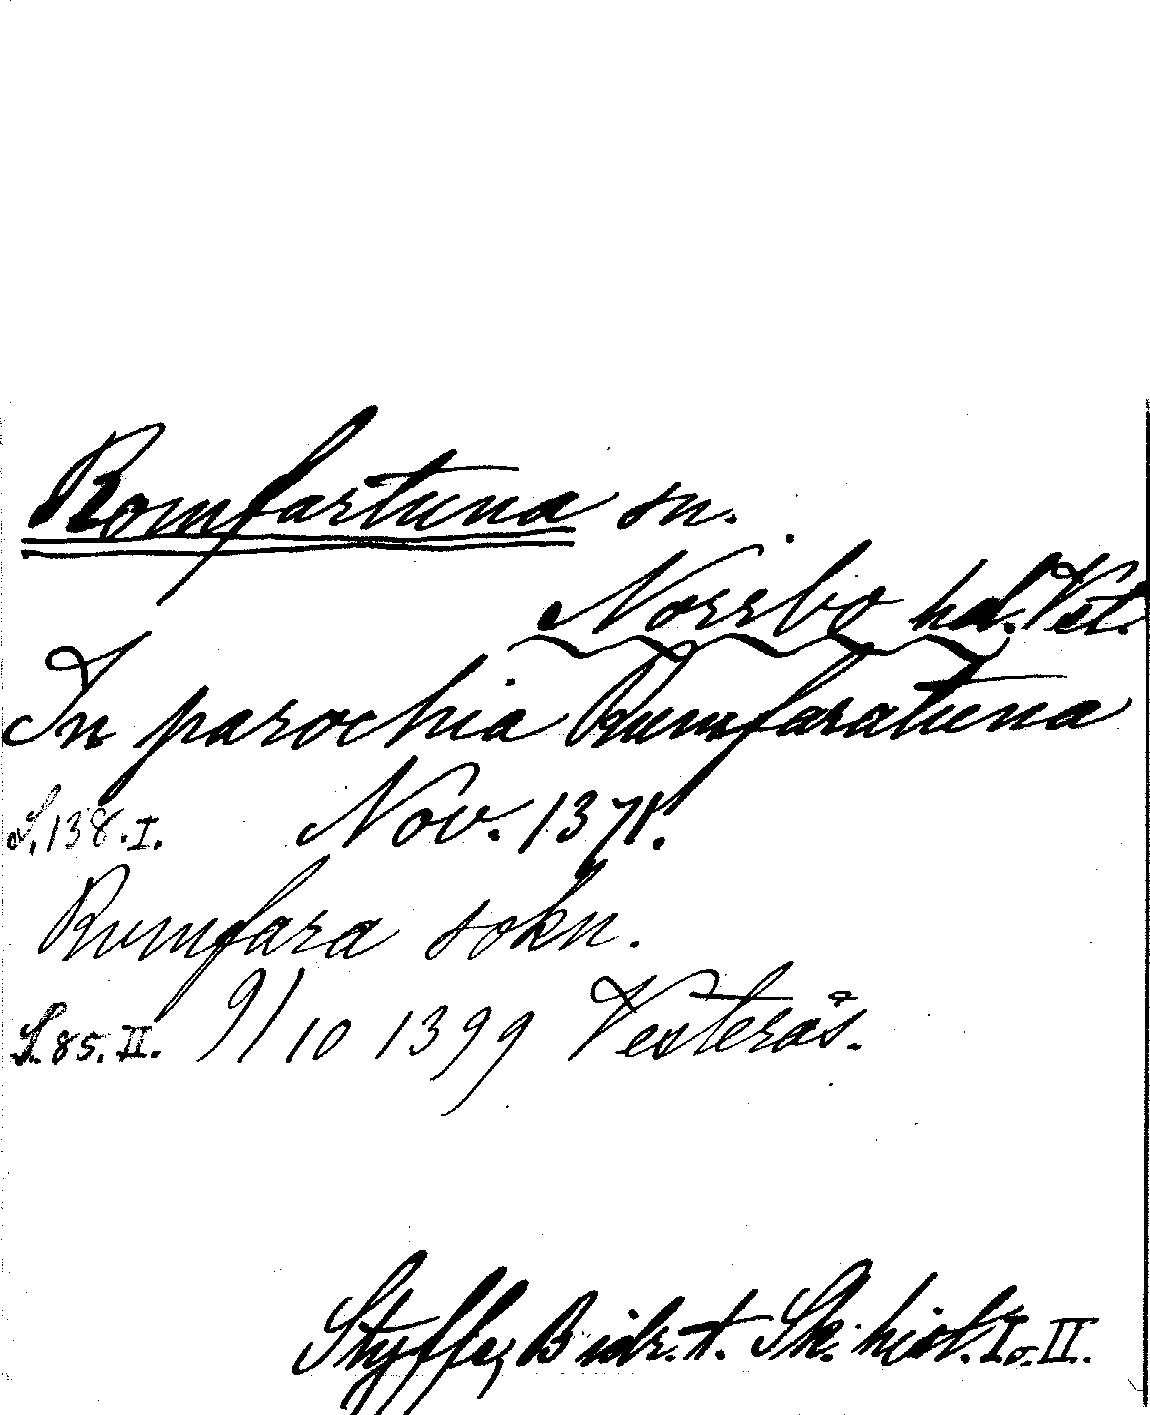 Romfartuna sn.
Norrbo hd. Vst.
In parochia Rumfaratuna
S. 138. I. Nov. 1371.
Rumfara sokn.
S. 85. II. 9/10 1399 Vesterås.
Styffe, Bidr. t. Sk. hist. I o. II.